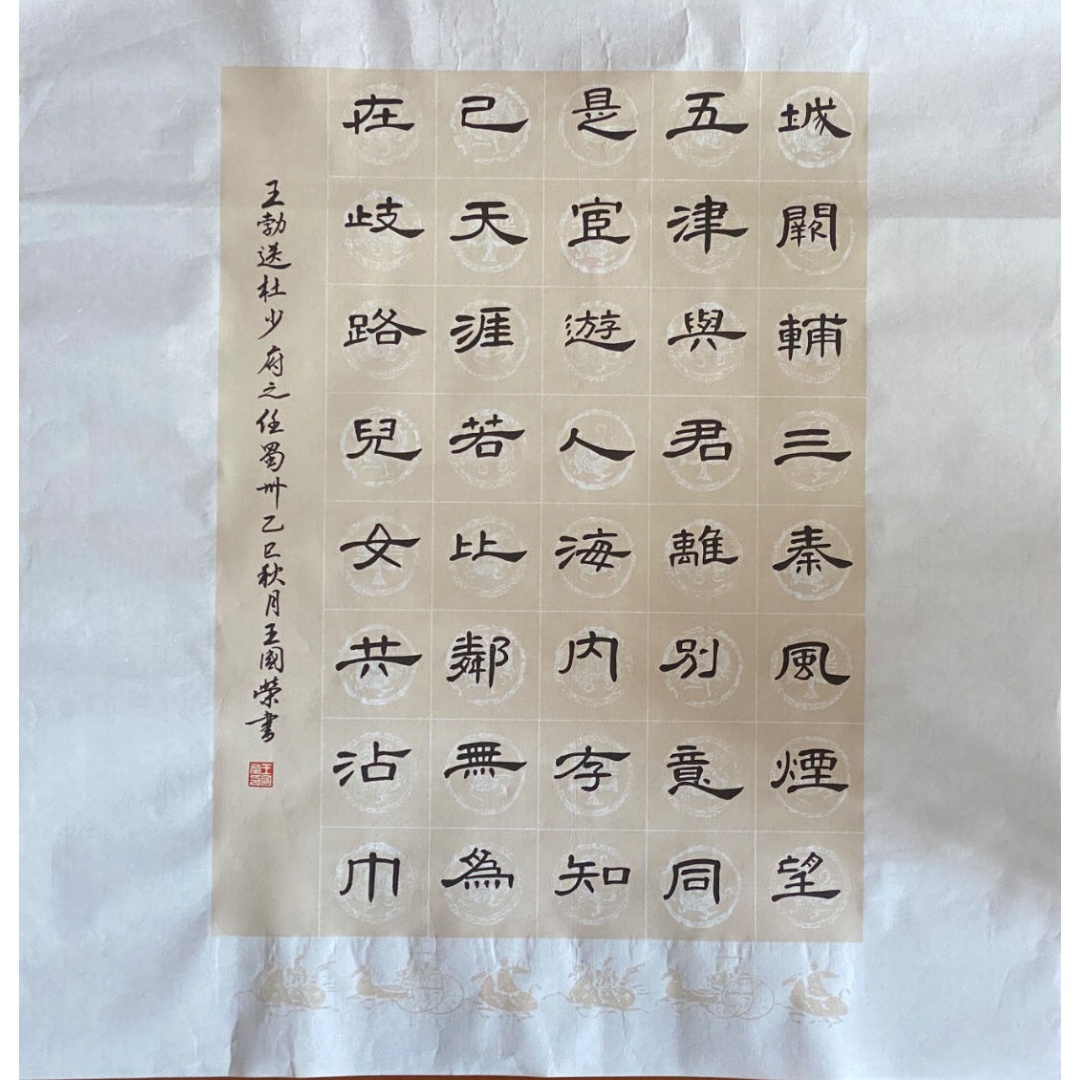 城闕輔三秦風煙望
五津與君離別意同
是宦遊人海內存知
己天涯若比鄰無為
在歧路兒女共沾巾
王勃送杜少府之任蜀州乙巳秋月王國榮書